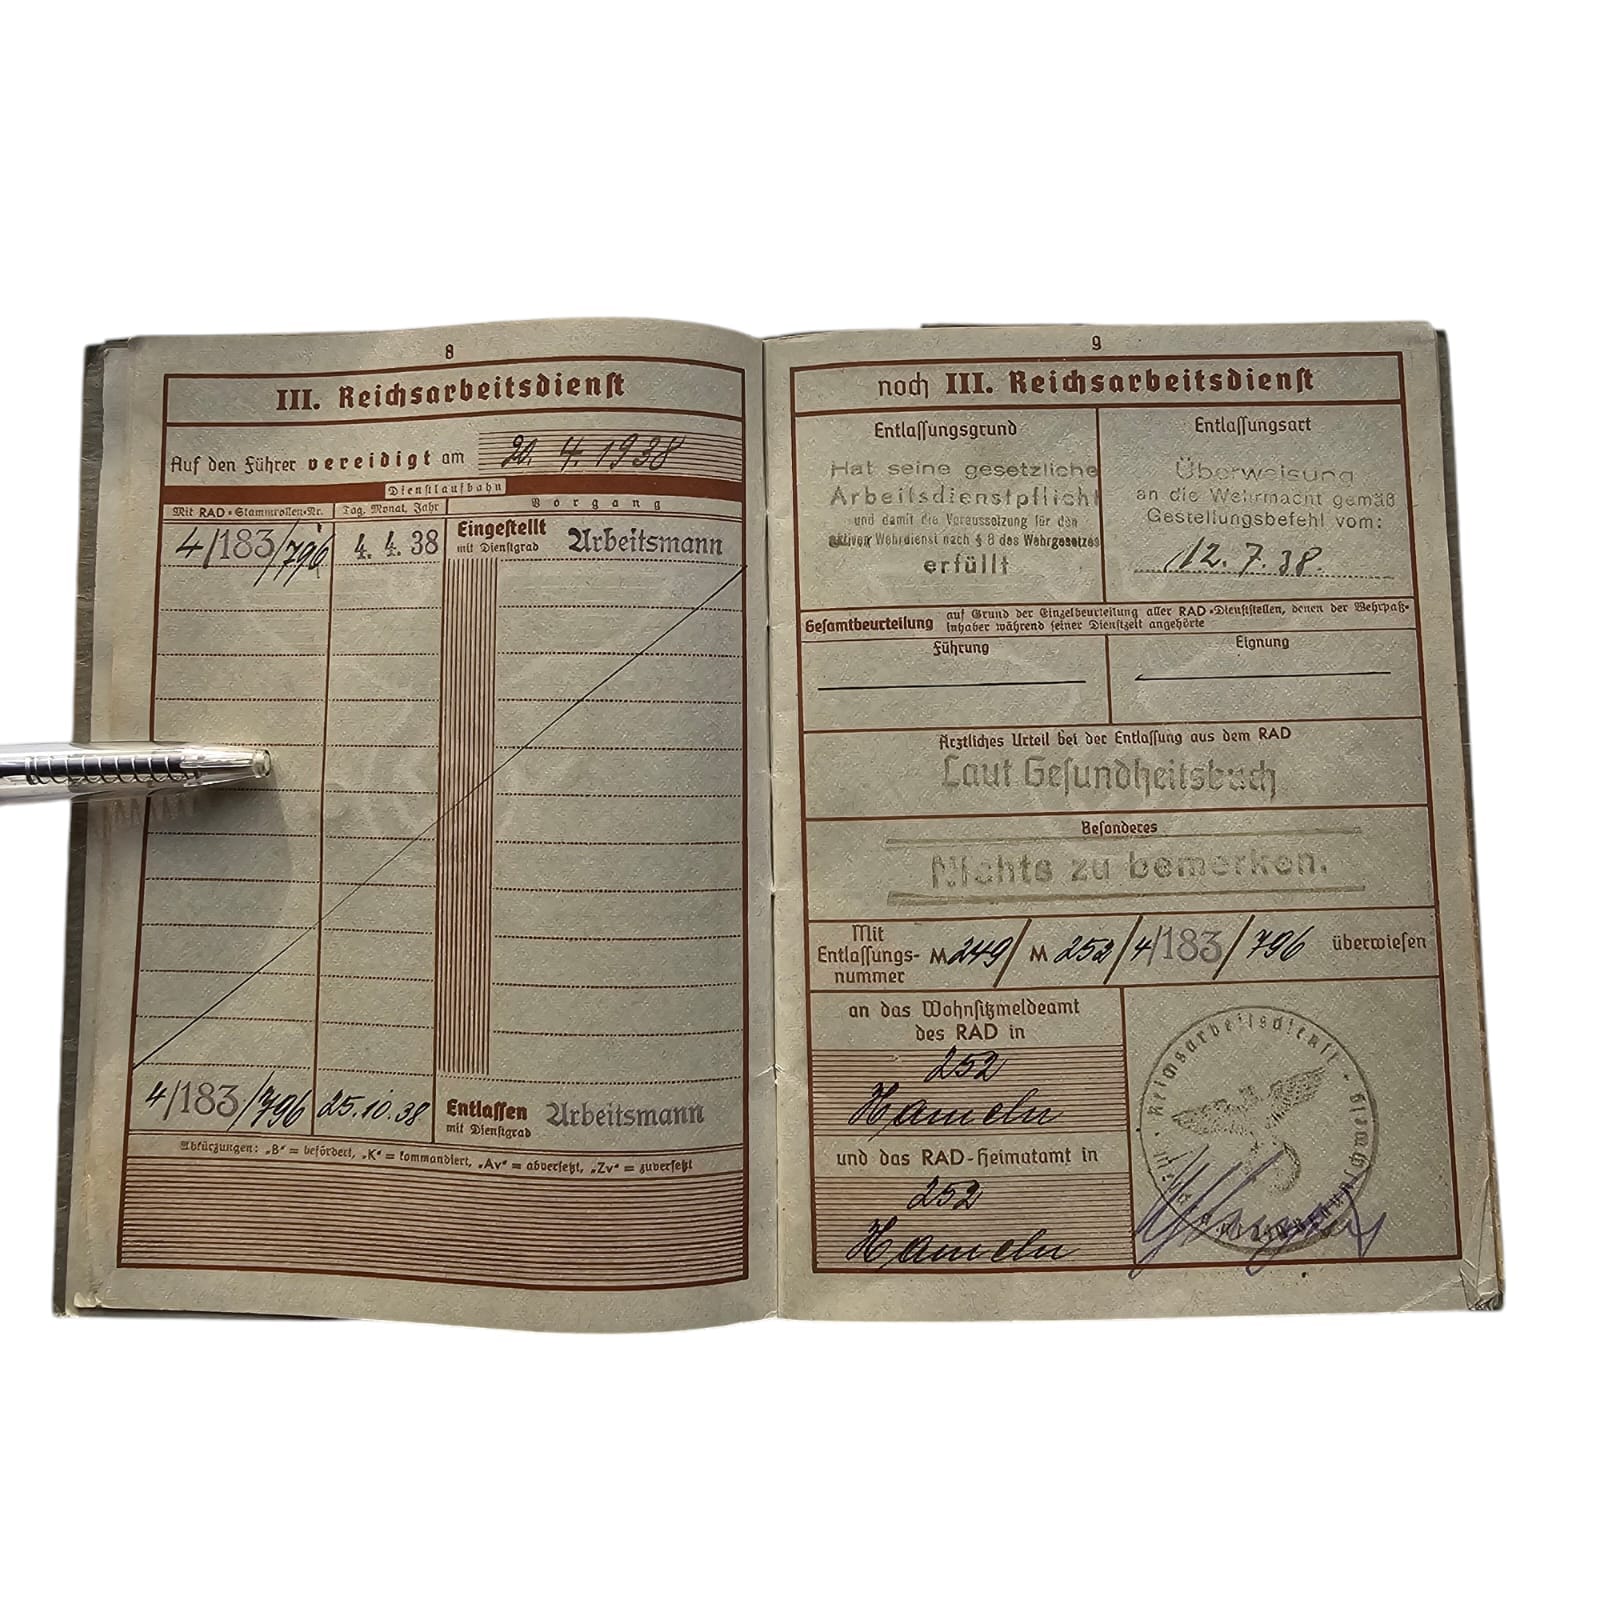 8
III. Reichsarbeitsdienst
Auf den Führer vereidigt am 20. 4. 1938
Dienstlaufbahn
Mit RAD-Stammrollen-Nr.
Tag, Monat, Jahr
Vorgang
4/183/796
4. 4. 38
Eingestellt
mit Dienstgrad
Arbeitsmann
4/183/796
25.10.38
Entlassen
mit Dienstgrad
Arbeitsmann
Abkürzungen: „B“ = befördert, „K“ = kommandiert, „Av“ = abversetzt, „Zv“ = zuversetzt
9
noch III. Reichsarbeitsdienst
Entlassungsgrund
Hat seine gesetzliche
Arbeitsdienstpflicht
und damit die Voraussetzung für den
aktiven Wehrdienst nach § 8 des Wehrgesetzes
erfüllt
Entlassungsart
Überweisung
an die Wehrmacht gemäß
Gestellungsbefehl vom:
12. 7. 38.
Gesamtbeurteilung
auf Grund der Einzelbeurteilung aller RAD-Dienststellen, denen der Wehrpaß-
Inhaber während seiner Dienstzeit angehörte
Führung
Eignung
Ärztliches Urteil bei der Entlassung aus dem RAD
Laut Gesundheitsbuch
Besonderes
Nichts zu bemerken.
Mit
Entlassungs-
nummer
M 249/ M 252/4/183/796 überwiesen
an das Wohnsitzmeldeamt
des RAD in
252
Hameln
und das RAD-Heimatamt in
252
Hameln
Reichsarbeitsdienst